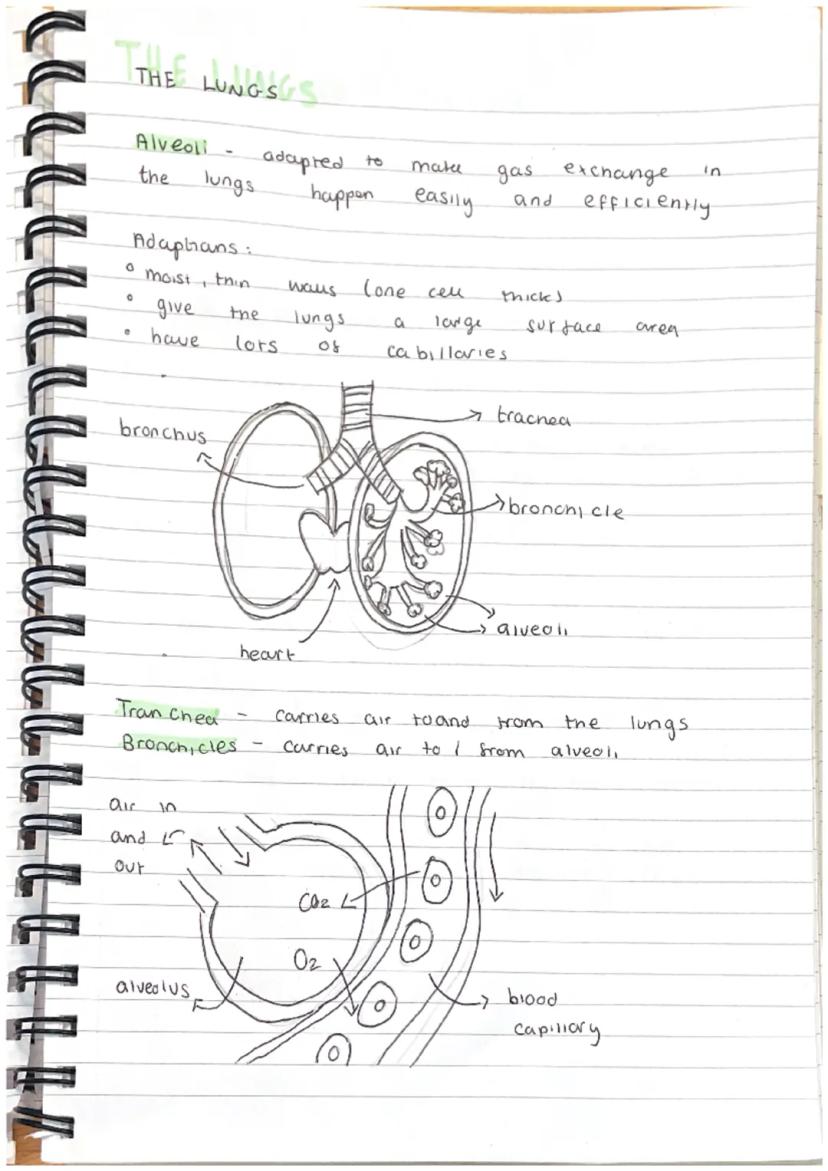 THE LUNGS
Alveoli - adapted to make gas exchange in
the lungs happen easily and efficiently
Adaptians:
° moist, thin walls (one cell thick)
° give the lungs a large surface area
° have lots of cabillaries
trachea
bronchus
bronchicle
alveoli
heart
Tranchea - carries air to and from the lungs
Bronchicles - carries air to / from alveoli
air in
and
out
CO2
O2
alveolus
blood
capillary